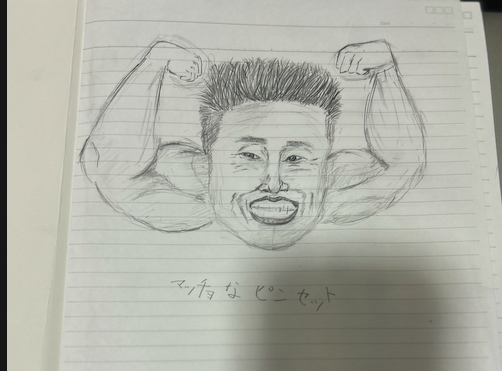 マッチョな ピンセット